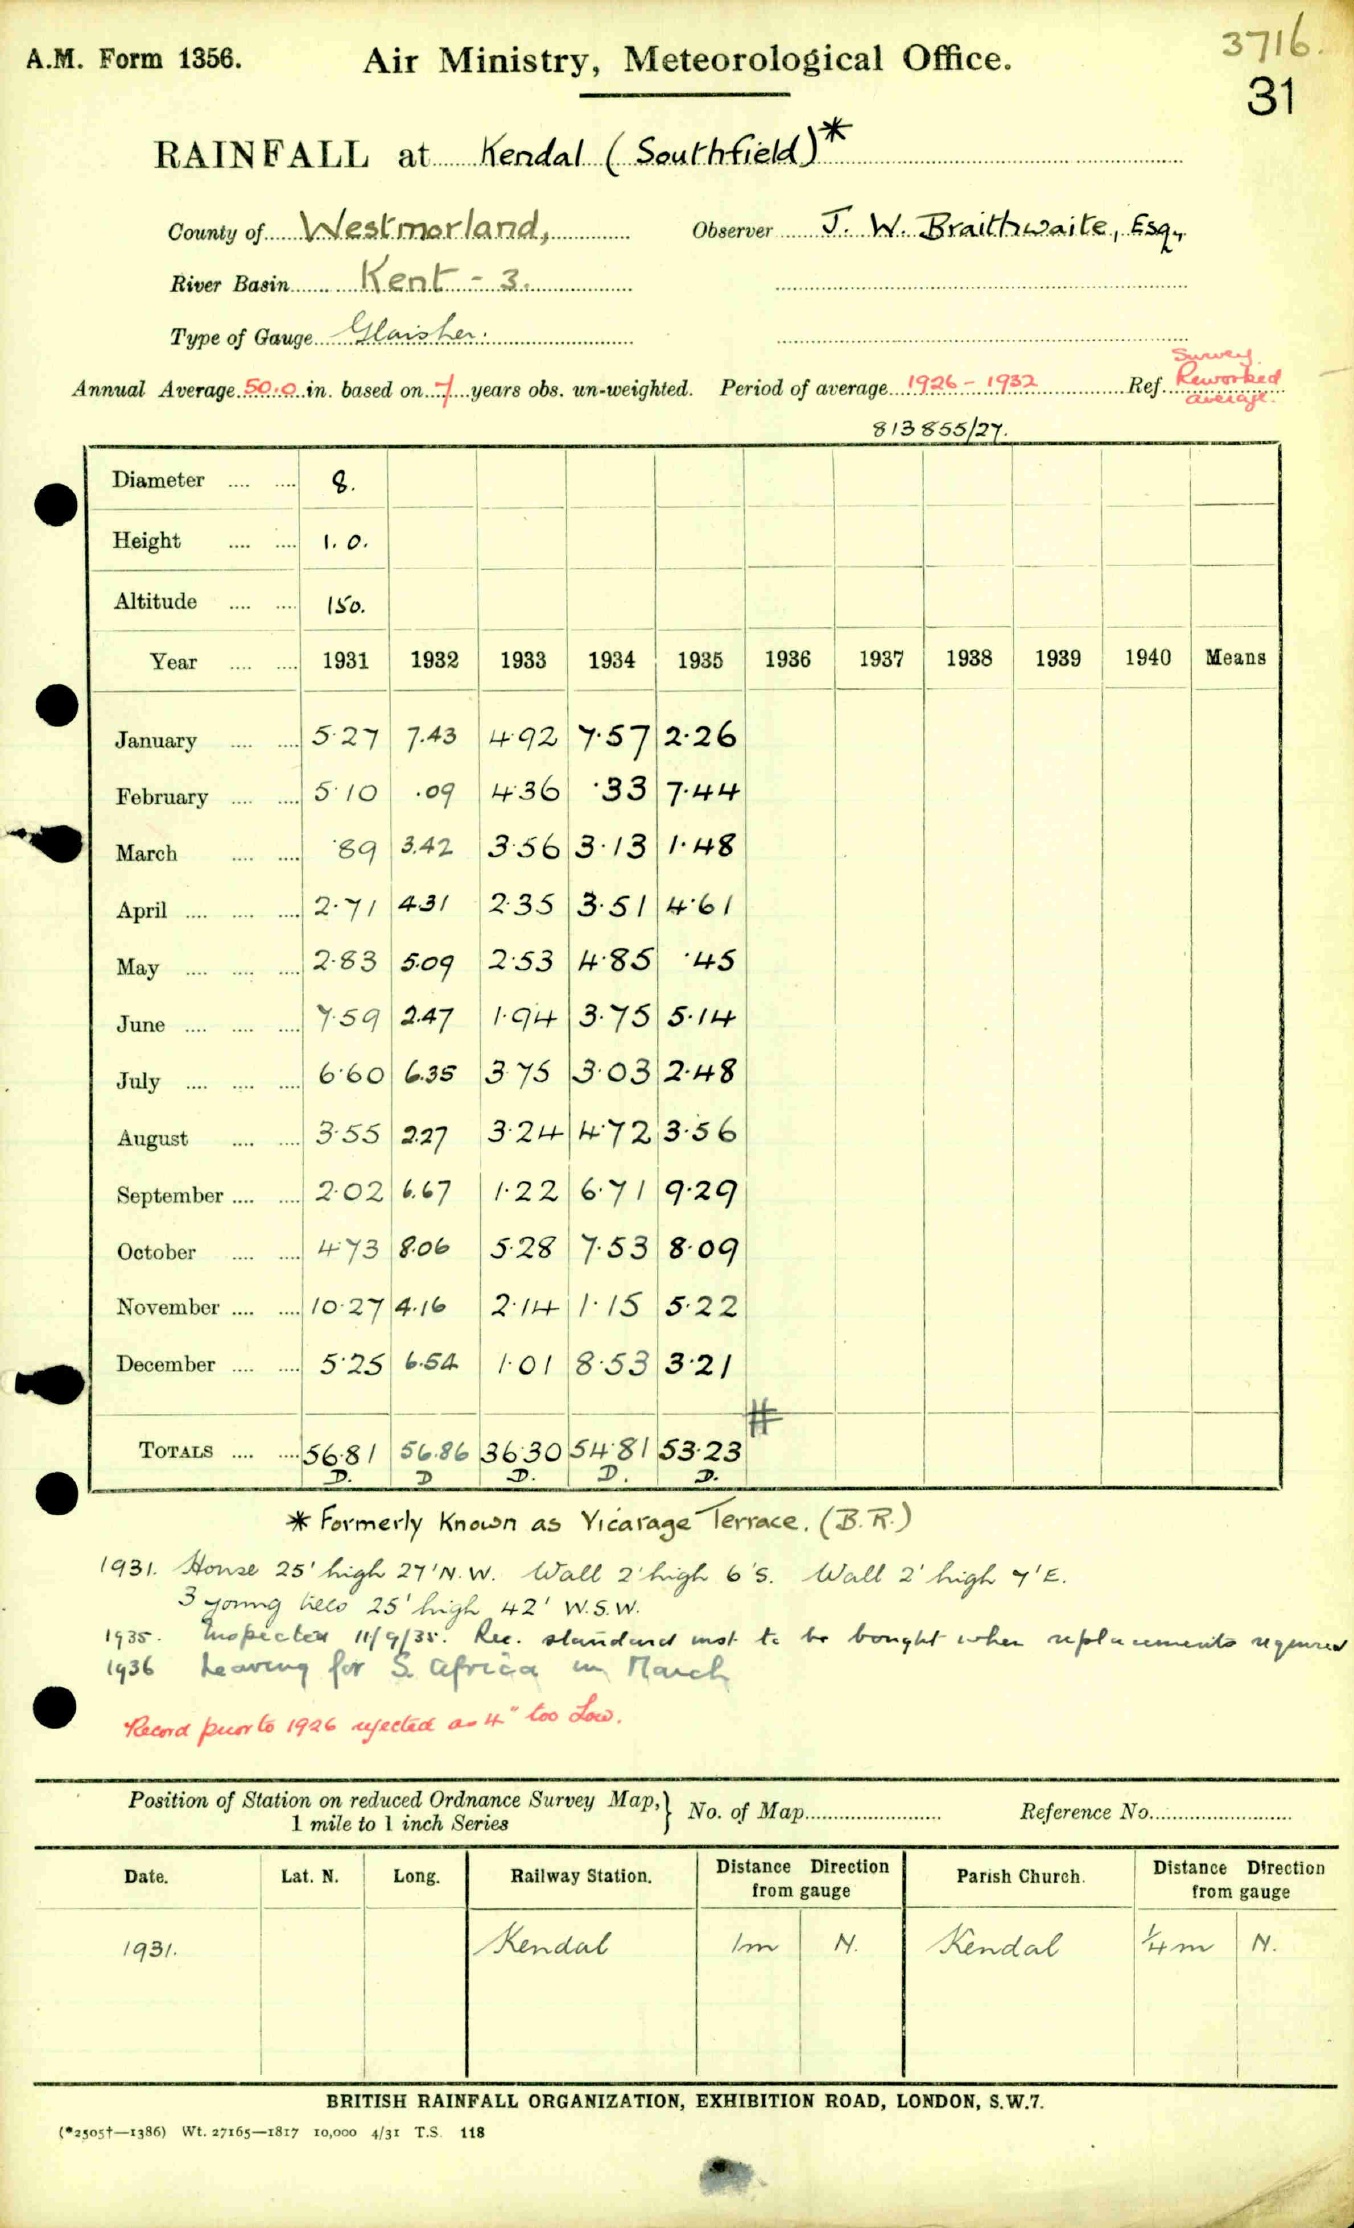 3716.
A.M. Form 1356. Air Ministry, Meteorological Office.
31
RAINFALL at Kendal (Southfield)*
County of Westmorland, Observer J. W. Braithwaite, Esq.,
River Basin Kent - 3.
Type of Gauge Glaisher.
Annual Average 50.0 in. based on 7 years obs. un-weighted. Period of average 1926 - 1932 Ref. Survey Reworked average.
813855/27.
Diameter .... .... 8.
Height .... .... 1. 0.
Altitude .... .... 150.
Year .... .... 1931 1932 1933 1934 1935 1936 1937 1938 1939 1940 Means
January .... .... 5·27 7.43 4·92 7·57 2·26
February .... .... 5·10 ·09 4·36 ·33 7·44
March .... .... ·89 3.42 3·56 3·13 1·48
April .... .... .... 2·71 4·31 2·35 3·51 4·61
May .... .... .... 2·83 5.09 2·53 4·85 ·45
June .... .... .... 7·59 2.47 1·94 3·75 5·14
July .... .... .... 6·60 6.35 3·75 3·03 2·48
August .... .... 3·55 2.27 3·24 4·72 3·56
September .... .... 2·02 6.67 1·22 6·71 9·29
October .... .... 4·73 8.06 5·28 7·53 8·09
November .... .... 10·27 4.16 2·14 1·15 5·22
December .... .... 5·25 6.54 1·01 8·53 3·21
#
TOTALS .... .... 56·81 56.86 36·30 54·81 53·23
D. D D. D. D.
* Formerly Known as Vicarage Terrace. (B.R.)
1931. House 25' high 27' N.W. Wall 2' high 6' S. Wall 2' high 7' E.
3 young trees 25' high 42' W.S.W.
1935. Inspected 11/9/35. Rec. standard inst. to be bought when replacements required
1936 Leaving for S. Africa in March
Record prior to 1926 rejected as 4" too Low.
Position of Station on reduced Ordnance Survey Map,} No. of Map Reference No.
1 mile to 1 inch Series
Date. Lat. N. Long. Railway Station. Distance Direction from gauge Parish Church. Distance Direction from gauge
1931. Kendal 1m N. Kendal 1/4 m N.
BRITISH RAINFALL ORGANIZATION, EXHIBITION ROAD, LONDON, S.W.7.
(*2505†—1386) Wt. 27165—1817 10,000 4/31 T.S. 118